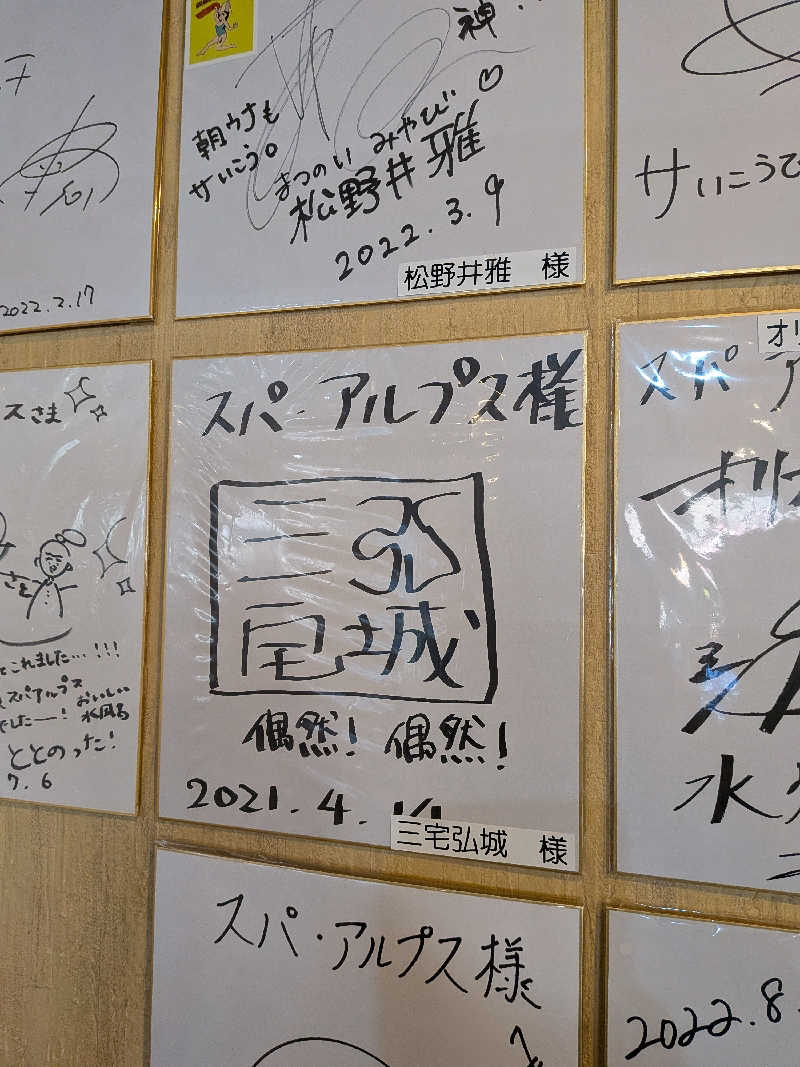 2022.2.17
神・・
朝ウナも
サいこう。
まつのい みやび♡
松野井雅
2022.3.9
松野井雅 様
サいこうで
スさま
さま
てこれました…!!!
スパアルプス
でしたー!
おいしい
水風呂
ととのった!
7.6
スパ・アルプス様
三宅弘城
偶然! 偶然!
2021.4.14
三宅弘城 様
オリ
スパ ア
オリ
水
スパ・アルプス様
2022.8